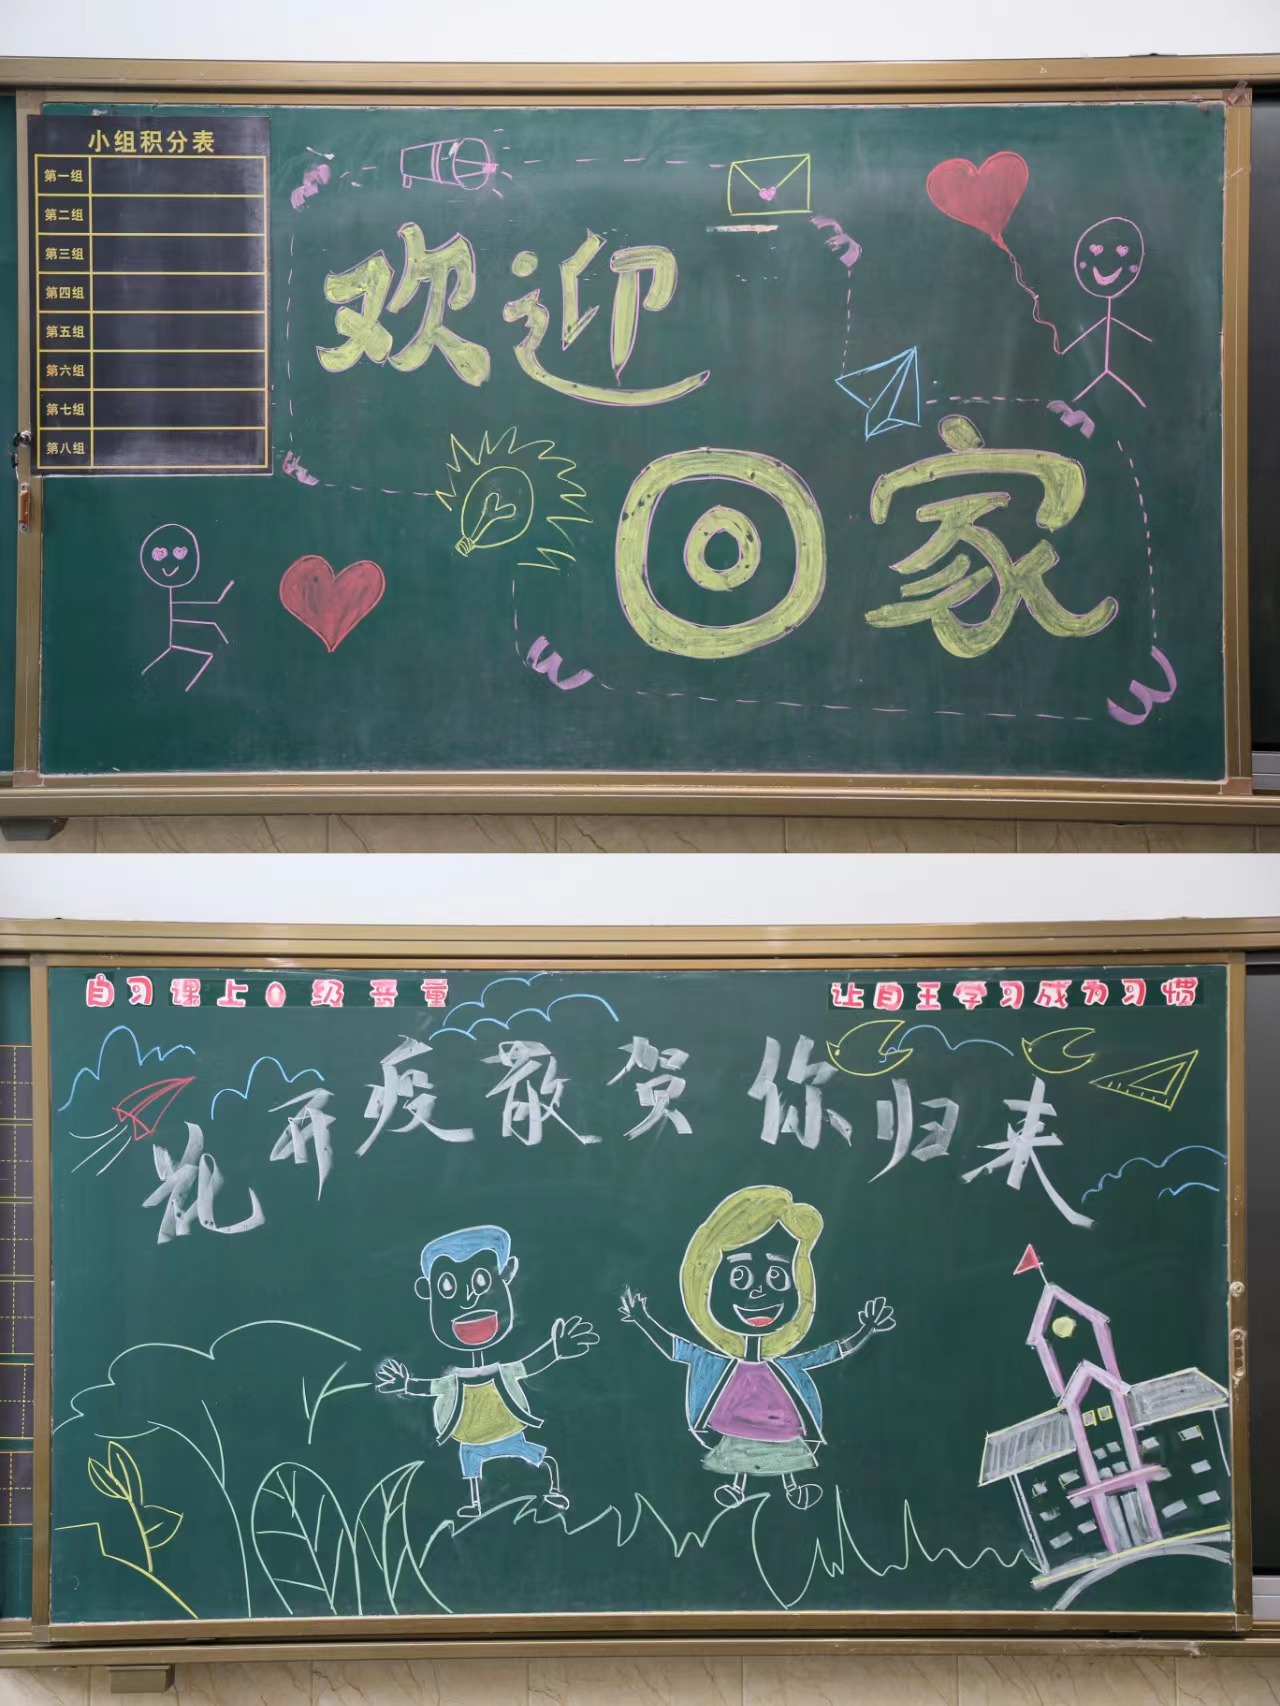 小组积分表
第一组
第二组
第三组
第四组
第五组
第六组
第七组
第八组
欢迎
回家
自习课上0级音量
让自主学习成为习惯
花开疫散贺你归来